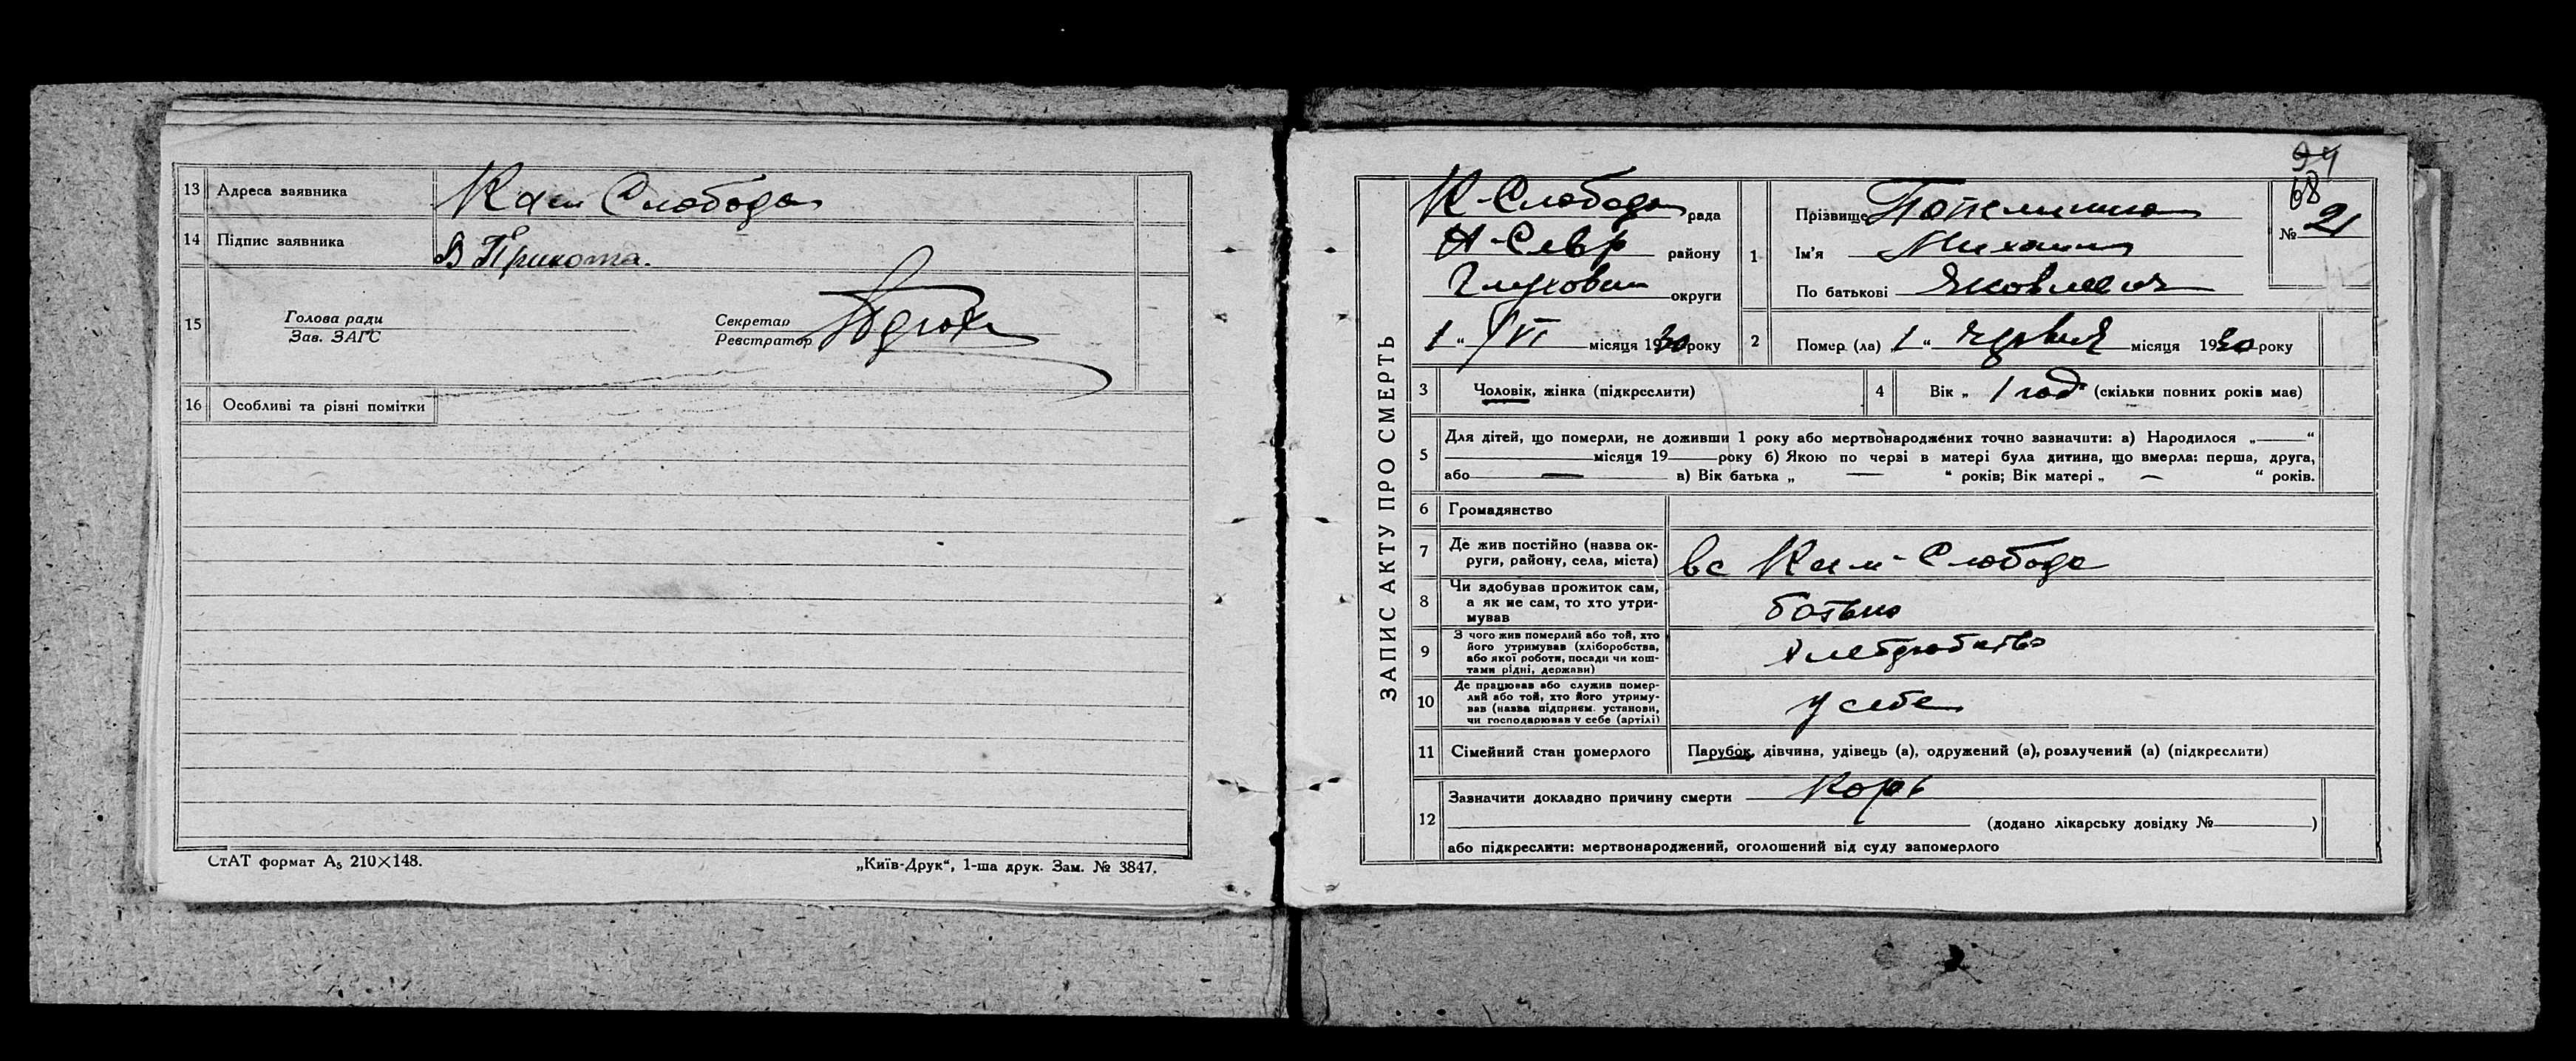 13 Адреса заявника Кам Слобода
14 Підпис заявника В Прихома.
15 Голова ради
Зав. ЗАГС
Секретар
Реєстратор
16 Особливі та різні помітки
СтАТ формат А5 210×148.
„Київ-Друк“, 1-ша друк. Зам. № 3847.
ЗАПИС АКТУ ПРО СМЕРТЬ
К-Слобода рада
Н-Сєвр району
Глуховск округи
1 “ VI місяця 1930 року
68
№ 21
1 Прізвище
Ім'я Михаил
По батькові Яковлевич
2 Помер (ла) „ 1 “ червня місяця 1930 року
3 Чоловік, жінка (підкреслити)
4 Вік „ 1 год “ (скільки повних років має)
5 Для дітей, що померли, не доживши 1 року або мертвонароджених точно зазначити: а) Народилося „ “
місяця 19 року б) Якою по черзі в матері була дитина, що вмерла: перша, друга,
або — в) Вік батька „ — “ років; Вік матері „ — “ років.
6 Громадянство
7 Де жив постійно (назва ок-
руги, району, села, міста) в с Кам-Слобода
8 Чи здобував прожиток сам,
а як не сам, то хто утри-
мував батько
9 З чого жив померлий або той, хто
його утримував (хліборобства,
або якої роботи, посади чи кош-
тами рідні, держави)
10 Де працював або служив помер-
лий або той, хто його утриму-
вав (назва підприєм. установи,
чи господарював у себе (артілі) у себе
11 Сімейний стан померлого Парубок, дівчина, удівець (а), одружений (а), розлучений (а) (підкреслити)
12 Зазначити докладно причину смерти Корь
(додано лікарську довідку № )
або підкреслити: мертвонароджений, оголошений від суду запомерлого